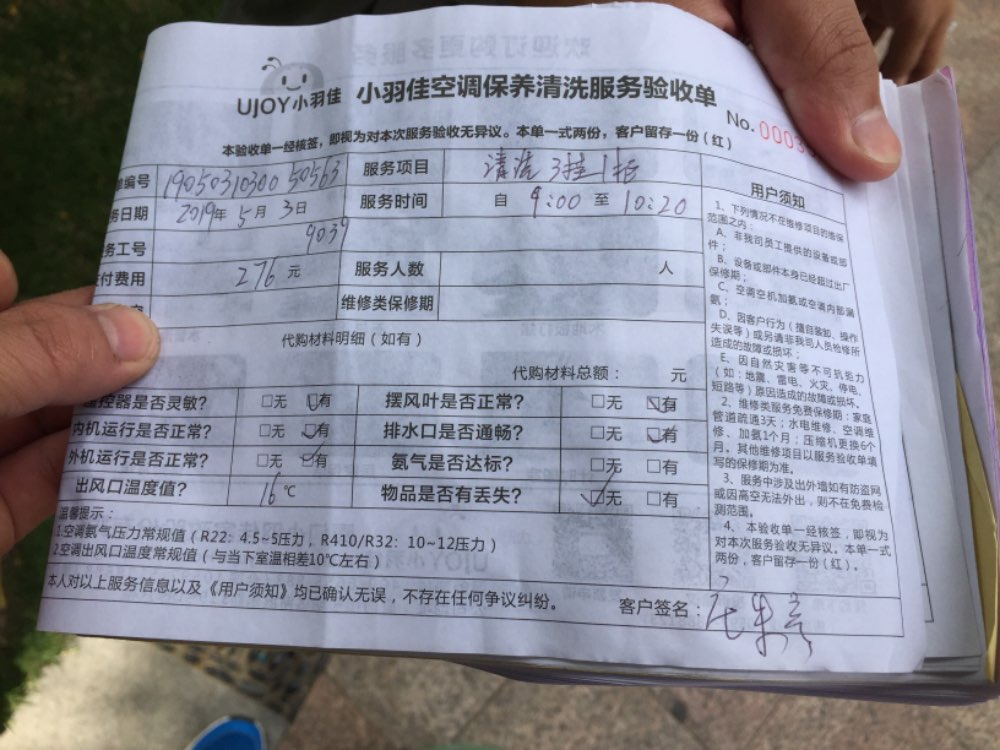 UJOY小羽佳 小羽佳空调保养清洗服务验收单
No. 0003
本验收单一经核签，即视为对本次服务验收无异议。本单一式两份，客户留存一份（红）
编号 1905031030050563 服务项目 清洗3挂1柜
务日期 2019年5月3日 服务时间 自 9:00 至 10:20
务工号 9039
付费用 276元 服务人数 人
维修类保修期
代购材料明细（如有）
代购材料总额： 元
遥控器是否灵敏？ □无 □有 摆风叶是否正常？ □无 □有
内机运行是否正常？ □无 □有 排水口是否通畅？ □无 □有
外机运行是否正常？ □无 □有 氨气是否达标？ □无 □有
出风口温度值？ 16℃ 物品是否有丢失？ □无 □有
温馨提示：
1.空调氨气压力常规值（R22：4.5~5压力，R410/R32：10~12压力）
2.空调出风口温度常规值（与当下室温相差10℃左右）
本人对以上服务信息以及《用户须知》均已确认无误，不存在任何争议纠纷。
客户签名：
用户须知
1、下列情况不在维修项目的维保
范围之内：
A、非我司员工提供的设备或部
件；
B、设备或部件本身已经超过出厂
保修期；
C、空调空机加氨或空调内部漏
氨；
D、因客户行为（擅自装卸、操作
失误等）或另请非我司人员检修所
造成的故障或损坏；
E、因自然灾害等不可抗拒力
（如：地震、雷电、火灾、停电、
短路等）原因造成的故障或损坏。
2、维修类服务免费保修期：家庭
管道疏通3天；水电维修、空调维
修、加氨1个月；压缩机更换6个
月。其他维修项目以服务验收单填
写的保修期为准。
3、服务中涉及出外墙如有防盗网
或因高空无法外出，则不在免费检
测范围。
4、本验收单一经核签，即视为
对本次服务验收无异议。本单一式
两份，客户留存一份（红）。